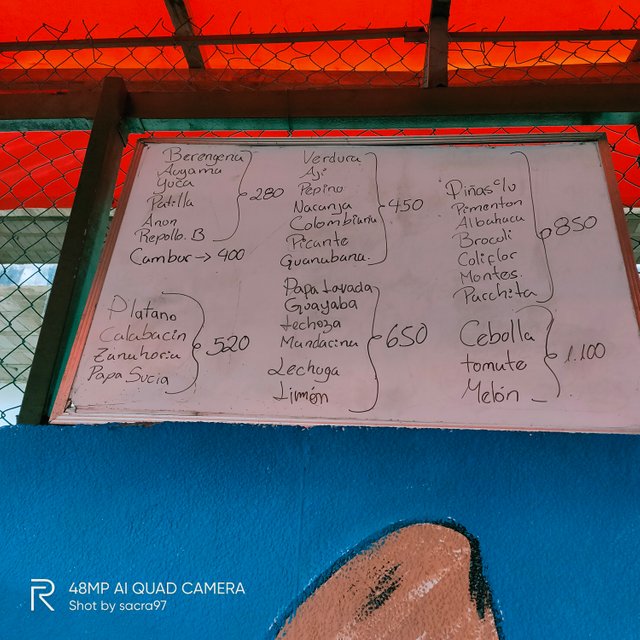 Berengena
Auyama
Yuca
Patilla
Anon
Repollo. B
280
Cambur → 400
Platano
Calabacin
Zanahoria
Papa Sucia
520
Verdura
Aji
Pepino
Naranja
Colombiana
Picante
Guanabana.
450
Papa Lavada
Guayaba
Lechoza
Mandarina
Lechuga
Limón
650
Piñas c/u
Pimenton
Albahaca
Brocoli
Coliflor
Montes.
Parchita
850
Cebolla
tomate
Melón
1.100
R
48MP AI QUAD CAMERA
Shot by sacra97